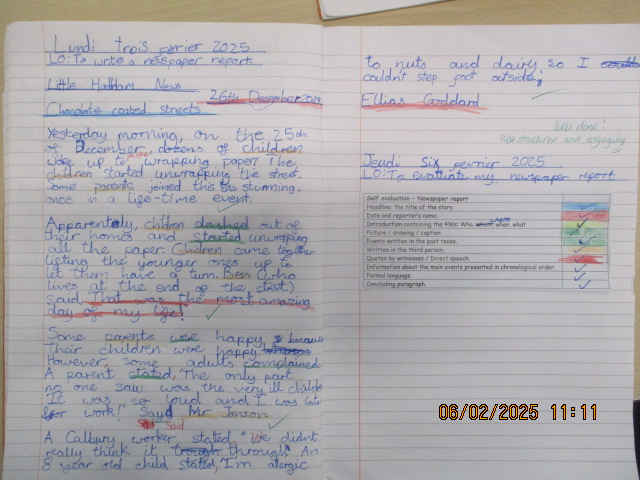 Lundi trois fevrier 2025
LO: To write a newspaper report.
Little Hallham News
26th December 2024
Chocolate coated streets
Yesterday morning, on the 25th
of December dozens of children
woke up to wrapping paper. The
children started unwrapping the street.
Some parents joined this stunning,
once in a life-time event.
Apparently, children dashed out of
their homes and started unwrapping
all the paper. Children came together
lifting the younger ones up to
let them have a turn. Ben (who
lives at the end of the street)
said, That was the most amazing
day of my life!"
Some parents were happy, because
their children were happy
However, some adults complained.
A parent stated, "The only part
no one saw was the very ill children
"It was so loud and I was late
for work!" Sayd Mr Jonson.
Said
A Calbury worker stated, "We didint
really think it through." An
8 year old child stated, "I'm alergic
to nuts and dairy so I
couldn't step foot outside;
Ellias Goddard
Well done!
structured and engaging
Jeudi six fevrier 2025
LO: To evaluate my newspaper report
Self evaluation - Newspaper report
Headline: the title of the story.
Date and reporter's name.
Introduction containing the 4Ws: Who, where, when, what
Picture / drawing / caption
Events written in the past tense.
Written in the third person.
Quotes by witnesses / Direct speech.
Information about the main events presented in chronological order.
Formal language.
Concluding paragraph.
06/02/2025 11:11